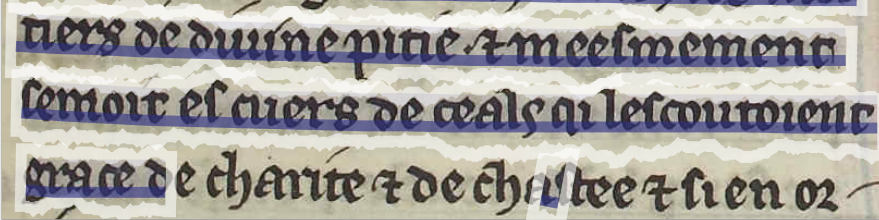 tiers de diuine pitie . ⁊ meesmement
semoit es cuers de ceals qi lescoutoient
grace de charite ⁊ de chastee ⁊ si en or